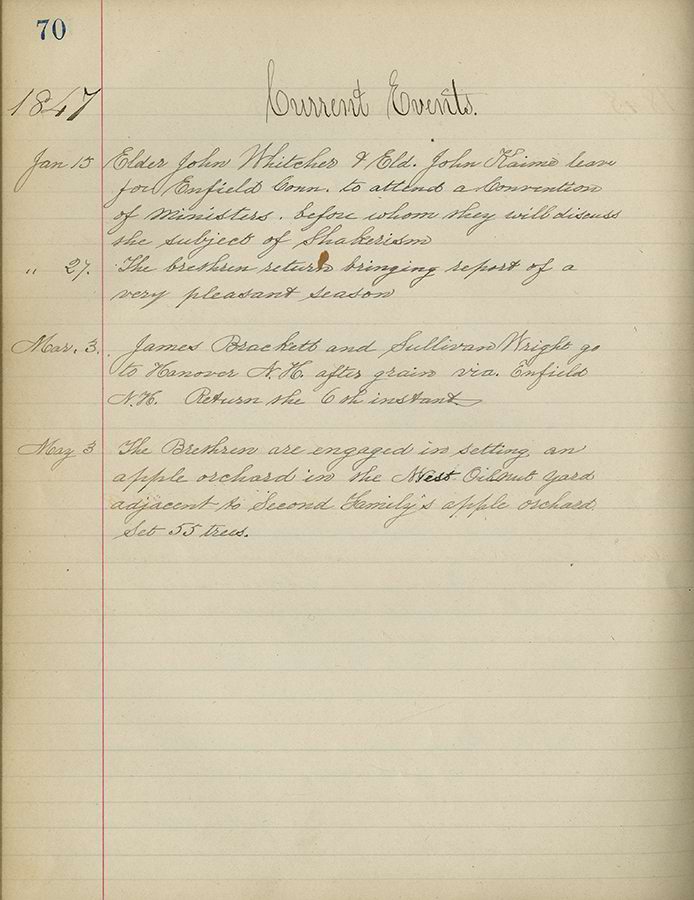 70
1847 Current Events.
Jan 15 Elder John Whitcher & Eld. John Kaime leave
for Enfield Conn. to attend a Convention
of Ministers. before whom they will discuss
the subject of Shakerism
" 27. The brethren return bringing report of a
very pleasant season
Mar. 3. James Brackett and Sullivan Wright go
to Hanover N.H. after grain via. Enfield
N.H. Return the 6th instant
May 3 The Brethren are engaged in setting an
apple orchard in the West Oilnut yard
adjacent to Second Family's apple orchard
Set 55 trees.